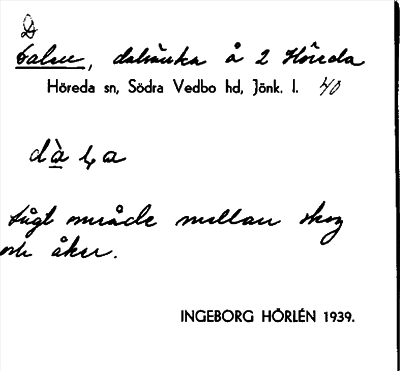 D
Dalen, dalsänka å 2 Höreda
Höreda sn, Södra Vedbo hd, Jönk. l. 40
lågt område mellan skog
och åker.
INGEBORG HÖRLÉN 1939.